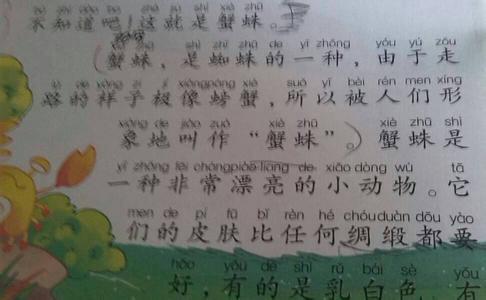 不知道吧！这就是蟹蛛。
zhū shì zhī zhū de yì zhǒng yóu yú zǒu
（蟹蛛，是蜘蛛的一种，由于走
lù de yàng zi jí xiàng páng xiè suǒ yǐ bèi rén men xíng
路的样子极像螃蟹，所以被人们形
xiàng de jiào zuò xiè zhū xiè zhū shì
象地叫作“蟹蛛”。）蟹蛛是
yì zhǒng fēi cháng piào liang de xiǎo dòng wù tā
一种非常漂亮的小动物。它
men de pí fū bǐ rèn hé chóu duàn dōu yào
们的皮肤比任何绸缎都要
hǎo yǒu de shì rǔ bái sè yǒu
好，有的是乳白色，有